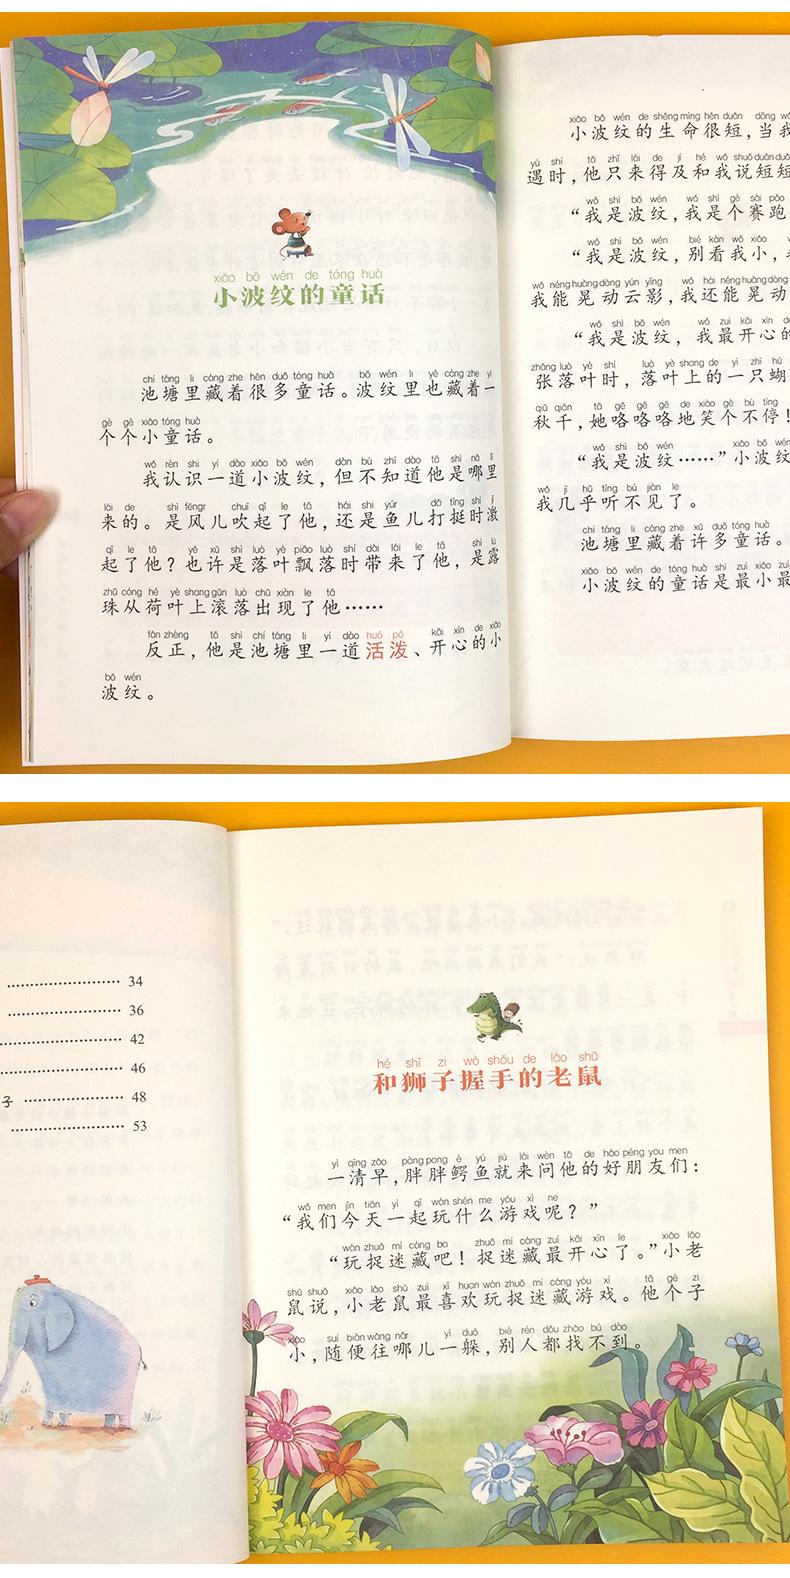 xiǎo bō wén de tóng huà
小波纹的童话
chí táng li cáng zhe hěn duō tóng huà bō wén li yě cáng zhe yí
池塘里藏着很多童话。波纹里也藏着一
gè gè xiǎo tóng huà
个个小童话。
wǒ rèn shi yí dào xiǎo bō wén dàn bù zhī dào tā shì nǎ lǐ
我认识一道小波纹,但不知道他是哪里
lái de shì fēngr chuī qǐ le tā hái shi yúr dǎ tǐng shí jī
来的。是风儿吹起了他,还是鱼儿打挺时激
qǐ le tā yě xǔ shì luò yè piāo luò shí dài lái le tā shì lù
起了他?也许是落叶飘落时带来了他,是露
zhū cóng hé yè shang gǔn luò chū xiàn le tā
珠从荷叶上滚落出现了他……
fǎn zhèng tā shì chí táng li yí dào huó pō kāi xīn de xiǎo
反正,他是池塘里一道活泼、开心的小
bō wén
波纹。
xiǎo bō wén de shēng mìng hěn duǎn dāng wǒ
小波纹的生命很短,当我
yù shí tā zhǐ lái de jí hé wǒ shuō duǎn duǎn
遇时,他只来得及和我说短短
wǒ shì bō wén wǒ shì gè sài pǎo
“我是波纹,我是个赛跑
wǒ shì bō wén bié kàn wǒ xiǎo
“我是波纹,别看我小,
wǒ néng huàng dòng yún yǐng wǒ hái néng huàng dòng
我能晃动云影,我还能晃动
wǒ shì bō wén wǒ zuì kāi xīn de
“我是波纹,我最开心的
zhāng luò yè shí luò yè shang de yì zhī hú
张落叶时,落叶上的一只蝴
qiū qiān tā gē gē gē de xiào gè bù tíng
秋千,她咯咯咯地笑个不停!
wǒ shì bō wén xiǎo bō wén
“我是波纹……”小波纹
wǒ jī hū tīng bú jiàn le
我几乎听不见了。
chí táng li cáng zhe xǔ duō tóng huà
池塘里藏着许多童话。
xiǎo bō wén de tóng huà shì zuì xiǎo zuì
小波纹的童话是最小最
34
36
42
46
子 48
53
hé shī zi wò shǒu de lǎo shǔ
和狮子握手的老鼠
yì qīng zǎo pàng pang è yú jiù lái wèn tā de hǎo péng you men
一清早,胖胖鳄鱼就来问他的好朋友们:
wǒ men jīn tiān yì qǐ wán shén me yóu xì ne
“我们今天一起玩什么游戏呢?”
wán zhuō mí cáng ba zhuō mí cáng zuì kāi xīn le xiǎo lǎo
“玩捉迷藏吧!捉迷藏最开心了。”小老
shǔ shuō xiǎo lǎo shǔ zuì xǐ huan wán zhuō mí cáng yóu xì tā gè zi
鼠说,小老鼠最喜欢玩捉迷藏游戏。他个子
xiǎo suí biàn wǎng nǎr yì duǒ bié rén dōu zhǎo bú dào
小,随便往哪儿一躲,别人都找不到。